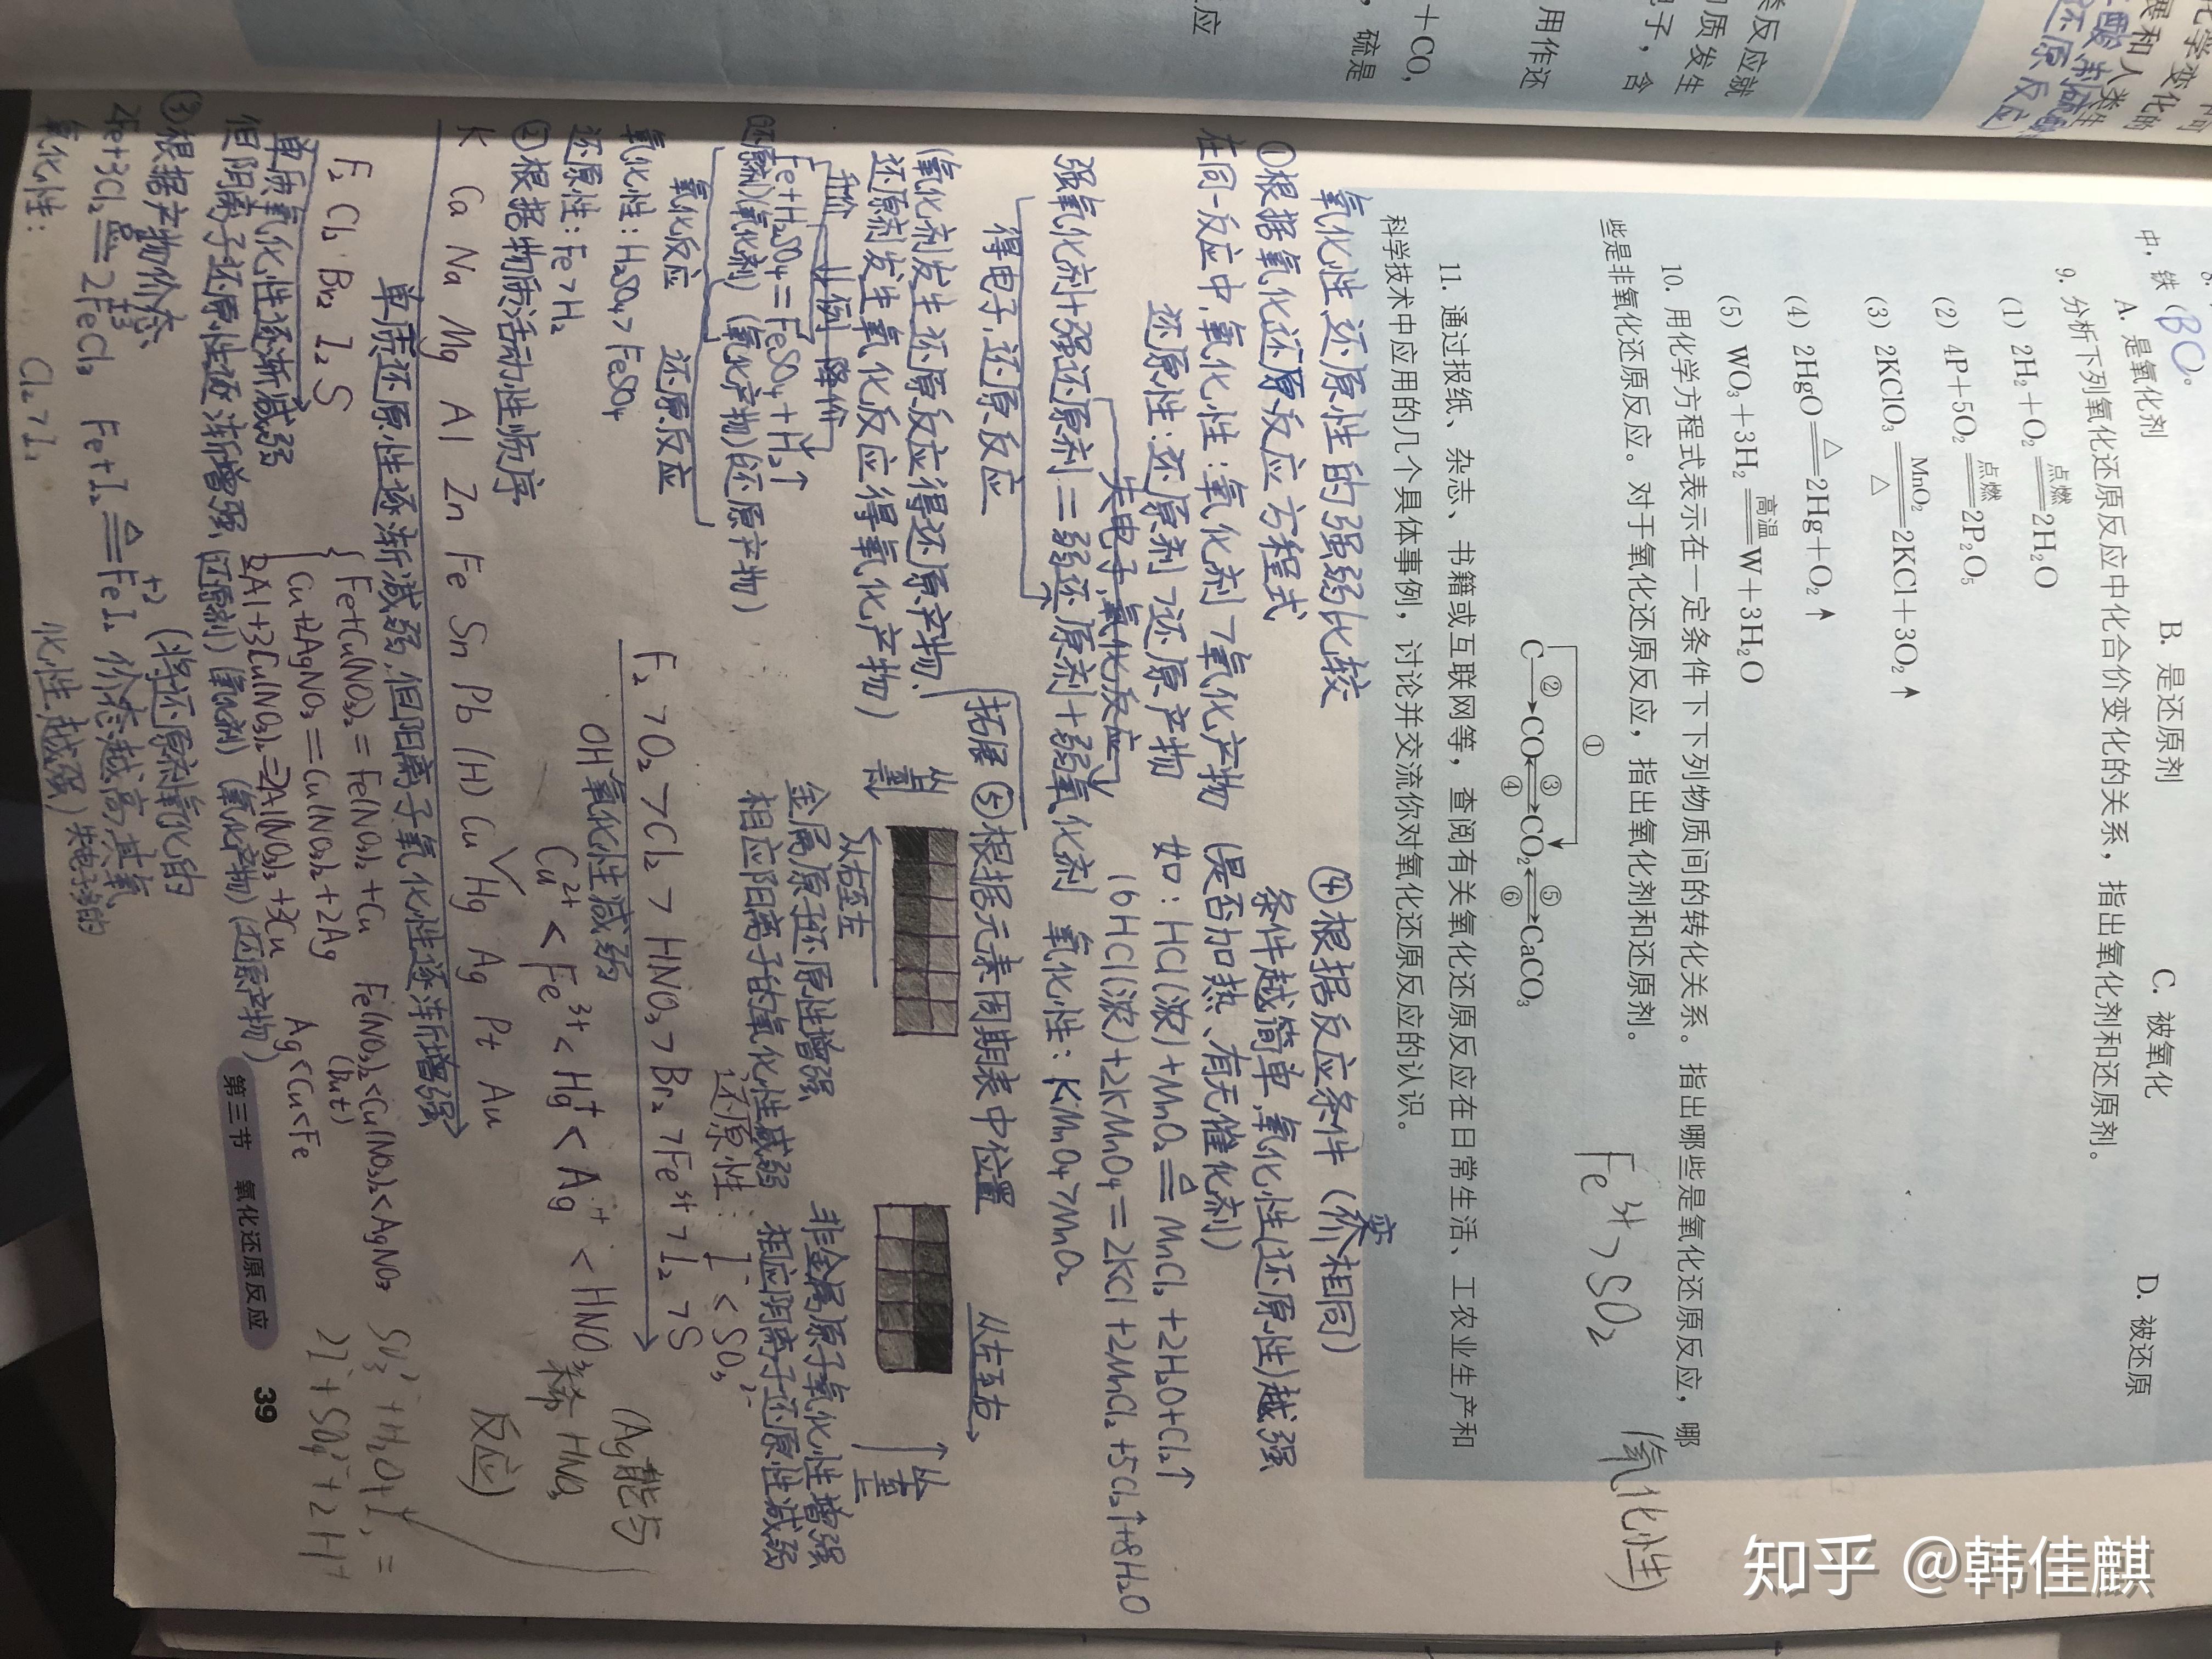 化学变化的
展和人类生
还原反应)
类反应就
和质发生
子，含
用作还
+CO,
，硫是
应
中，铁(BC)。
A. 是氧化剂 B. 是还原剂 C. 被氧化 D. 被还原
9. 分析下列氧化还原反应中化合价变化的关系，指出氧化剂和还原剂。
(1) 2H₂+O₂ 点燃 2H₂O
(2) 4P+5O₂ 点燃 2P₂O₅
(3) 2KClO₃ MnO₂ △ 2KCl+3O₂↑
(4) 2HgO △ 2Hg+O₂↑
(5) WO₃+3H₂ 高温 W+3H₂O
10. 用化学方程式表示在一定条件下下列物质间的转化关系。指出哪些是氧化还原反应，哪
些是非氧化还原反应。对于氧化还原反应，指出氧化剂和还原剂。
Fe³⁺>SO₂ (氧化性)
①
C ② CO ③ ④ CO₂ ⑤ ⑥ CaCO₃
11. 通过报纸、杂志、书籍或互联网等，查阅有关氧化还原反应在日常生活、工农业生产和
科学技术中应用的几个具体事例，讨论并交流你对氧化还原反应的认识。
氧化性、还原性的强弱比较
①根据氧化还原反应方程式
在同一反应中，氧化性：氧化剂>氧化产物
还原性：还原剂>还原产物
失电子，氧化反应
强氧化剂+强还原剂=弱还原剂+弱氧化剂
得电子，还原反应
(氧化剂发生还原反应得还原产物、
还原剂发生氧化反应得氧化产物)
升价 比例 降价
Fe+H₂SO₄=FeSO₄+H₂↑
(还原剂)(氧化剂) (氧化产物)(还原产物)
氧化反应 还原反应
氧化性：H₂SO₄>FeSO₄
还原性：Fe>H₂
②根据物质活动性顺序
K Ca Na Mg Al Zn Fe Sn Pb (H) Cu Hg Ag Pt Au
单质还原性逐渐减弱，但阳离子氧化性逐渐增强
F₂ Cl₂ Br₂ I₂ S
单质氧化性逐渐减弱
但阴离子还原性逐渐增强
Fe+Cu(NO₃)₂=Fe(NO₃)₂+Cu
Cu+2AgNO₃=Cu(NO₃)₂+2Ag
2Al+3Cu(NO₃)₂=2Al(NO₃)₃+3Cu
(还原剂) (氧化剂) (氧化产物) (还原产物)
Fe(NO₃)₂<Cu(NO₃)₂<AgNO₃
Ag<Cu<Fe
③根据产物价态 (将还原剂氧化的
2Fe+3Cl₂ 点燃 2FeCl₃ +3 Fe+I₂ △ FeI₂ +2 价态越高其氧
氧化性： Cl₂>I₂ 化性越强)
④根据反应条件 (价变相同)
条件越简单，氧化性(还原性)越强
(是否加热、有无催化剂)
如：HCl(浓)+MnO₂ △ MnCl₂+2H₂O+Cl₂↑
16HCl(浓)+2KMnO₄=2KCl+2MnCl₂+5Cl₂↑+8H₂O
氧化性：KMnO₄>MnO₂
拓展 ⑤根据元素周期表中位置
从右至左
金属原子还原性增强
相应阳离子的氧化性减弱
从左至右
非金属原子氧化性增强
相应阴离子还原性减弱
还原性：I⁻<SO₃²⁻
F₂>O₂>Cl₂>HNO₃>Br₂>Fe³⁺>I₂>S
氧化性减弱
Cu²⁺<Fe³⁺<Hg⁺<Ag⁺<HNO₃
(Ag能与
稀HNO₃
反应)
SO₃²⁻+H₂O+I₂=
2I⁻+SO₄²⁻+2H⁺
第三节 氧化还原反应 39
知乎 @韩佳麒